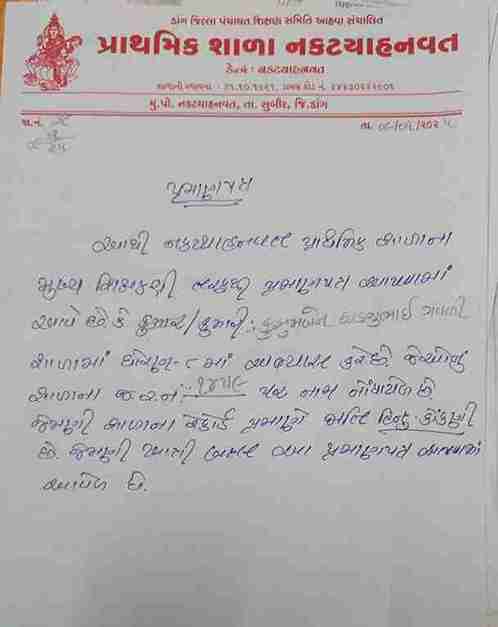 ડાંગ જિલ્લા પંચાયત શિક્ષણ સમિતિ આહવા સંચાલિત
પ્રાથમિક શાળા નકટયાહનવત
કેન્દ્ર : નકટયાહનવત
મુ.પો. નકટયાહનવત, તા. સુબીર, જિ.ડાંગ
જા.નં.
તા.
પ્રમાણપત્ર
આથી નકટયાહનવત પ્રાથમિક શાળાના
મુખ્ય શિક્ષકશ્રી તરફથી પ્રમાણપત્ર આપવામાં
આવે છે કે કુમાર/કુમારી: કુસુમબેન
શાળામાં ધોરણ-૮ માં અભ્યાસ કરે છે. જેઓનું
શાળાના જ.ર.નં: પર નામ નોંધાયેલ છે
જેમની શાળાના રેકોર્ડ પ્રમાણે જાતિ હિન્દુ કોંકણી
છે. જેમની આથી ખાતરી પ્રમાણપત્ર
આપેલ છે.